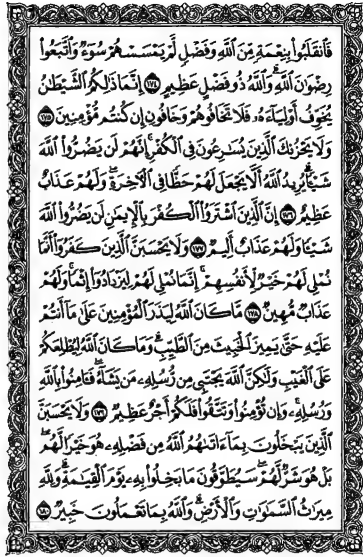 فَٱنقَلَبُوا۟ بِنِعْمَةٍ مِّنَ ٱللَّهِ وَفَضْلٍ لَّمْ يَمْسَسْهُمْ سُوٓءٌ وَٱتَّبَعُوا۟
رِضْوَٰنَ ٱللَّهِ ۗ وَٱللَّهُ ذُو فَضْلٍ عَظِيمٍ ﴿١٧٤﴾ إِنَّمَا ذَٰلِكُمُ ٱلشَّيْطَٰنُ
يُخَوِّفُ أَوْلِيَآءَهُۥ فَلَا تَخَافُوهُمْ وَخَافُونِ إِن كُنتُم مُّؤْمِنِينَ ﴿١٧٥﴾
وَلَا يَحْزُنكَ ٱلَّذِينَ يُسَٰرِعُونَ فِى ٱلْكُفْرِ ۚ إِنَّهُمْ لَن يَضُرُّوا۟ ٱللَّهَ
شَيْـًٔا ۗ يُرِيدُ ٱللَّهُ أَلَّا يَجْعَلَ لَهُمْ حَظًّا فِى ٱلْـَٔاخِرَةِ ۖ وَلَهُمْ عَذَابٌ
عَظِيمٌ ﴿١٧٦﴾ إِنَّ ٱلَّذِينَ ٱشْتَرَوُا۟ ٱلْكُفْرَ بِٱلْإِيمَٰنِ لَن يَضُرُّوا۟ ٱللَّهَ
شَيْـًٔا وَلَهُمْ عَذَابٌ أَلِيمٌ ﴿١٧٧﴾ وَلَا يَحْسَبَنَّ ٱلَّذِينَ كَفَرُوٓا۟ أَنَّمَا
نُمْلِى لَهُمْ خَيْرٌ لِّأَنفُسِهِمْ ۚ إِنَّمَا نُمْلِى لَهُمْ لِيَزْدَادُوٓا۟ إِثْمًا ۚ وَلَهُمْ
عَذَابٌ مُّهِينٌ ﴿١٧٨﴾ مَّا كَانَ ٱللَّهُ لِيَذَرَ ٱلْمُؤْمِنِينَ عَلَىٰ مَآ أَنتُمْ
عَلَيْهِ حَتَّىٰ يَمِيزَ ٱلْخَبِيثَ مِنَ ٱلطَّيِّبِ ۗ وَمَا كَانَ ٱللَّهُ لِيُطْلِعَكُمْ
عَلَى ٱلْغَيْبِ وَلَٰكِنَّ ٱللَّهَ يَجْتَبِى مِن رُّسُلِهِۦ مَن يَشَآءُ ۖ فَـَٔامِنُوا۟ بِٱللَّهِ
وَرُسُلِهِۦ ۚ وَإِن تُؤْمِنُوا۟ وَتَتَّقُوا۟ فَلَكُمْ أَجْرٌ عَظِيمٌ ﴿١٧٩﴾ وَلَا يَحْسَبَنَّ
ٱلَّذِينَ يَبْخَلُونَ بِمَآ ءَاتَىٰهُمُ ٱللَّهُ مِن فَضْلِهِۦ هُوَ خَيْرًا لَّهُم ۖ
بَلْ هُوَ شَرٌّ لَّهُمْ ۖ سَيُطَوَّقُونَ مَا بَخِلُوا۟ بِهِۦ يَوْمَ ٱلْقِيَٰمَةِ ۗ وَلِلَّهِ
مِيرَٰثُ ٱلسَّمَٰوَٰتِ وَٱلْأَرْضِ ۗ وَٱللَّهُ بِمَا تَعْمَلُونَ خَبِيرٌ ﴿١٨٠﴾